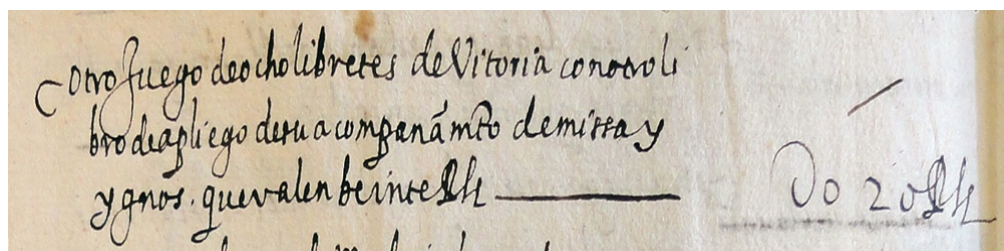 otro Juego de ocho libretes de Vitoria con otro li
bro de a pliego de su acompanámto de missa y
ygnos. que valen beinte Rs
Do 20 Rs